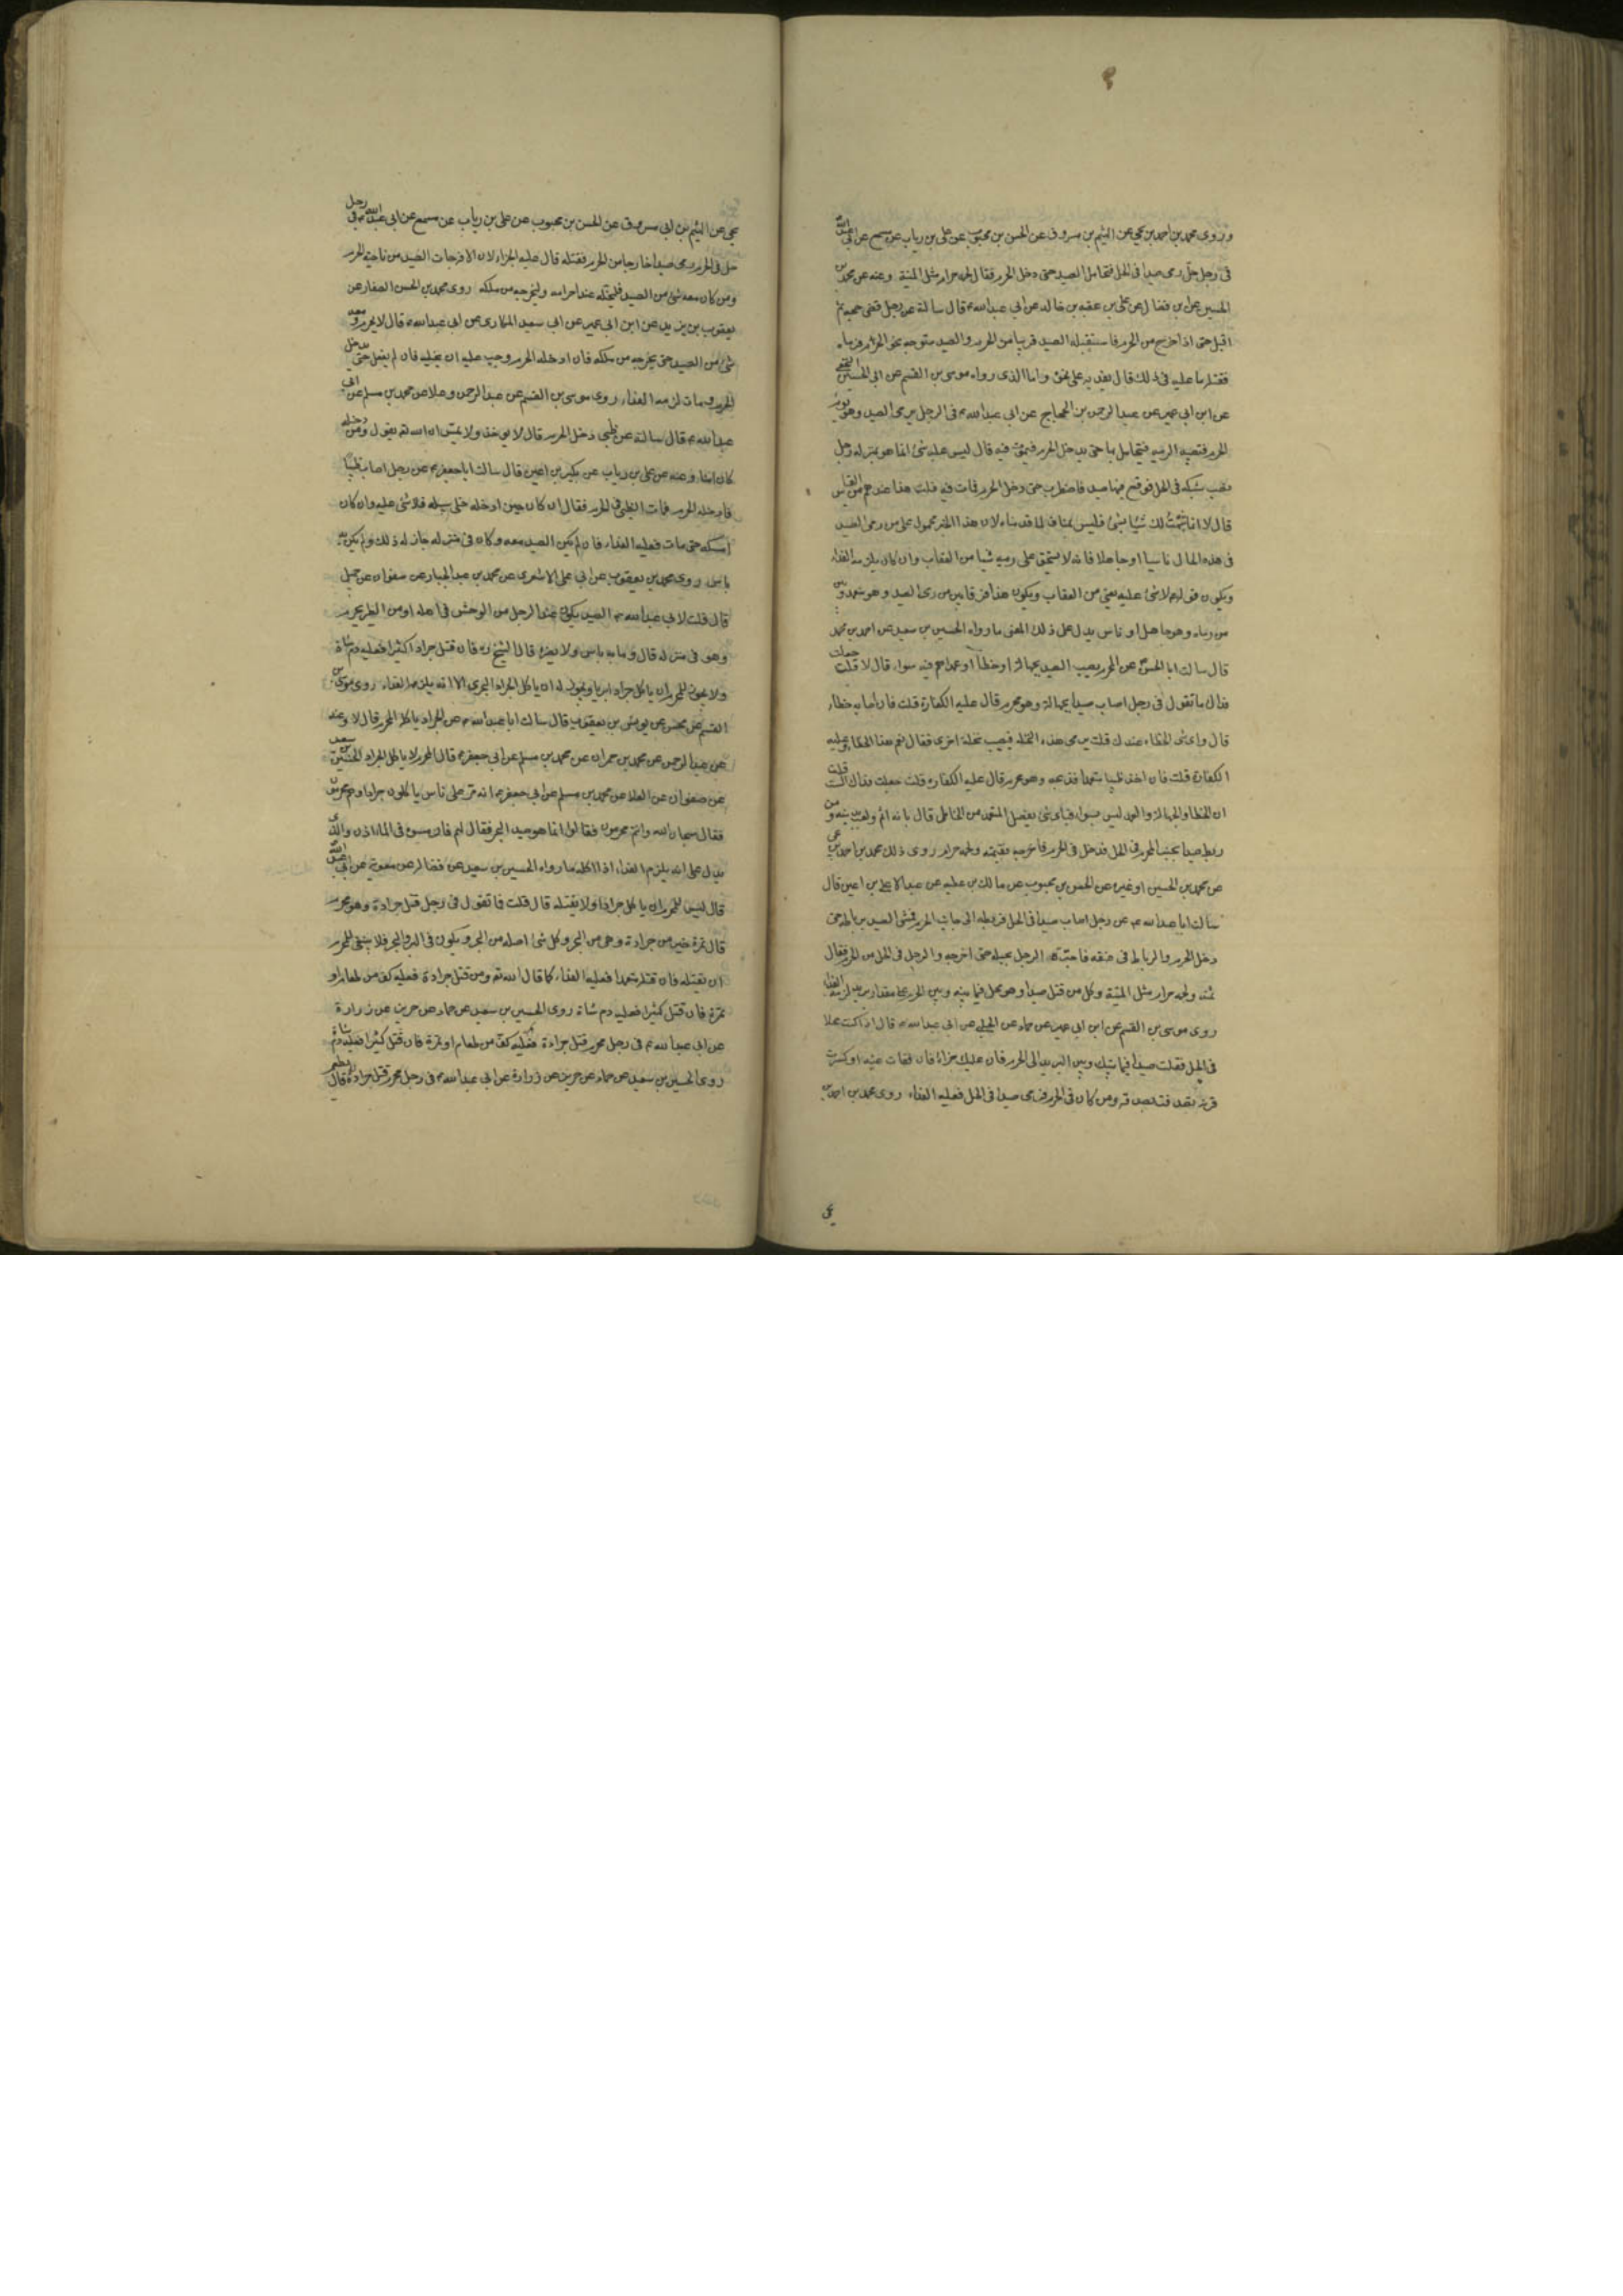 وروى محمد بن احمد بن يحيى عن الهيثم بن مسروق عن الحسن بن محبوب عن على بن رياب عن مسمع عن ابى عبدالله
فى رجل حل رمى صيدا فى الحل فتحامل الصيد حتى دخل الحرم فقال لحمه حرام مثل الميتة وعنه عن محمد بن
الحسين عن ابن فضال عن على بن عقبه بن خالد عن ابى عبدالله ع قال سالته عن رجل قضى حجه ثم
اقبل حتى اذا خرج من الحرم فاستقبله الصيد قريبا من الحرم والصيد متوجه نحو الحرم فرماه
فقتله ما عليه فى ذلك قال يفديه على نحوه واما الذى رواه موسى بن القسم عن ابى الحسين النخعى
عن ابن ابى عمير عن عبدالرحمن بن الحجاج عن ابى عبدالله ع فى الرجل يرمى الصيد وهو يؤم
الحرم فتصيبه الرميه فيتحامل بها حتى يدخل الحرم فيموت فيه قال ليس عليه شئ انما هو بمنزله رجل
نصب شبكه فى الحل فوقع فيها صيد فاضطرب حتى دخل الحرم فمات فيه قلت هذا عندهم من القياس
قال لا انما شبهت لك شيئا بشئ فليس بمناف لما قدمناه لان هذا الخبر محمول على من رمى الصيد
فى هذه الحال ناسيا او جاهلا فانه لا يستحق على رميه شيا من العقاب وان كان يلزمه الفداء
ويكون قوله ع لا شئ عليه يعنى من العقاب ويكون هذا فرقا بين من رمى الصيد وهو متعمد وبين
من رماه وهو جاهل او ناس يدل على ذلك المعنى ما رواه الحسين بن سعيد عن احمد بن محمد
قال سالت ابا الحسن ع عن المحرم يصيب الصيد بجهالة او خطأ او عمد اهم فيه سواء قال لا قلت جعلت
فداك ما تقول فى رجل اصاب صيدا بجهالة وهو محرم قال عليه الكفارة قلت فان اصابه خطاء
قال واى شئ الخطاء عندك قلت يرمى هذه النخله فيصيب نخلة اخرى فقال نعم هذا الخطا وعليه
الكفارة قلت فان اخذ ظبيا متعمدا فذبحه وهو محرم قال عليه الكفاره قلت جعلت فداك الست قلت
ان الخطا والجهالة والعمد ليس بسواء فباى شئ يفصل المتعمد من الخاطى قال بانه اثم ولعب بدينه ومن
ربط صيدا بجنب الحرم فى الحل فدخل فى الحرم فاخرجه فقيمته ولحمه حرام روى ذلك محمد بن احمد بن يحيى
عن محمد بن الحسين او غيره عن الحسن بن محبوب عن مالك بن عطيه عن عبدالاعلى بن اعين قال
سالت ابا عبدالله ع عن رجل اصاب صيدا فى الحل فربطه الى جانب الحرم فمشى الصيد برباطه حتى
دخل الحرم والرباط فى عنقه فاجتره الرجل بحبله حتى اخرجه والرجل فى الحل من الحرم فقال
ثمنه ولحمه حرام مثل الميتة وكل من قتل صيدا وهو محل فيما بينه وبين الحرم على مقدار بريد لزمه الفداء
روى موسى بن القسم عن ابن ابى عمير عن حماد عن الحلبى عن ابى عبدالله ع قال اذا كنت محلا
فى الحل فقتلت صيدا فيما بينك وبين البريد الى الحرم فان عليك جزاؤه فان فقأت عينه او كسرت
قرنه تصدقت بصدقه ومن كان فى الحرم فرمى صيدا فى الحل فعليه الفداء روى محمد بن احمد بن
يحيى
يحيى عن الهيثم بن ابى مسروق عن الحسن بن محبوب عن على بن رياب عن مسمع عن ابى عبدالله ع فى رجل
حل فى الحرم رمى صيدا خارجا من الحرم فقتله قال عليه الجزاء لان الافة جات الصيد من ناحية الحرم
ومن كان معه شئ من الصيد فليخله عند احرامه وليخرجه من ملكه روى محمد بن الحسن الصفار عن
يعقوب بن يزيد عن ابن ابى عمير عن ابى سعيد المكارى عن ابى عبدالله ع قال لا يحرم ومعه
شئ من الصيد حتى يخرجه من ملكه فان ادخله الحرم وجب عليه ان يخليه فان لم يفعل حتى يدخل
الحرم ومات لزمه الفداء روى موسى بن القسم عن عبدالرحمن وعلا عن محمد بن مسلم عن ابى
عبدالله ع قال سالته عن ظبى دخل الحرم قال لا يوخذ ولا يمس ان الله تع يقول ومن دخله
كان امنا وعنه عن على بن رياب عن بكير بن اعين قال سالت ابا جعفر ع عن رجل اصاب ظبيا
فادخله الحرم فمات الظبى فى الحرم فقال ان كان حين ادخله خلى سبيله فلا شئ عليه وان كان
امسكه حتى مات فعليه الفداء فان لم يكن الصيد معه وكان فى منزله جاز له ذلك ولم يكن به
باس روى محمد بن يعقوب عن ابى على الاشعرى عن محمد بن عبدالجبار عن صفوان عن جميل
قال قلت لابى عبدالله ع الصيد يكون عند الرجل من الوحش فى اهله او من الطير يحرم
وهو فى منزله قال وما به باس ولا يضره قال الشيخ ره فان قتل جرادا كثيرا فعليه دم شاة
ولا يجوز للمحرم ان ياكل جرادا بريا ويجوز له ان ياكل الجراد البحرى الا انه يلزمه الفداء روى موسى بن
القسم عن محسن عن يونس بن يعقوب قال سالت ابا عبدالله ع عن الجراد ياكله المحرم قال لا وعنه
عن عبدالرحمن عن محمد بن حمران عن محمد بن مسلم عن ابى جعفر ع قال المحرم لا ياكل الجراد الحسين بن سعيد
عن صفوان عن العلا عن محمد بن مسلم عن ابى جعفر ع انه مر على ناس ياكلون جرادا وهم محرمون
فقال سبحان الله وانتم محرمون فقالوا انما هو صيد البحر فقال لهم فارمسوه فى الماء اذن والذى
يدل على انه يلزم الفداء اذا اكله ما رواه الحسين بن سعيد عن فضالة عن معوية عن ابى عبدالله
قال ليس للمحرم ان ياكل جرادا ولا يقتله قال قلت ما تقول فى رجل قتل جرادة وهو محرم
قال تمرة خير من جرادة وهى من البحر وكل شئ اصله من البحر ويكون فى البر والبحر فلا ينبغى للمحرم
ان يقتله فان قتله متعمدا فعليه الفداء كما قال الله تع ومن قتل جرادة فعليه كف من طعام او
تمرة فان قتل كثيرا فعليه دم شاة روى الحسين بن سعيد عن حماد عن حريز عن زرارة
عن ابى عبدالله ع فى رجل محرم قتل جرادة فعليه كف من طعام او تمرة فان قتل كثيرا فعليه دم شاة
روى الحسين بن سعيد عن حماد عن حريز عن زرارة عن ابى عبدالله ع فى رجل محرم قتل جرادة قال يطعم